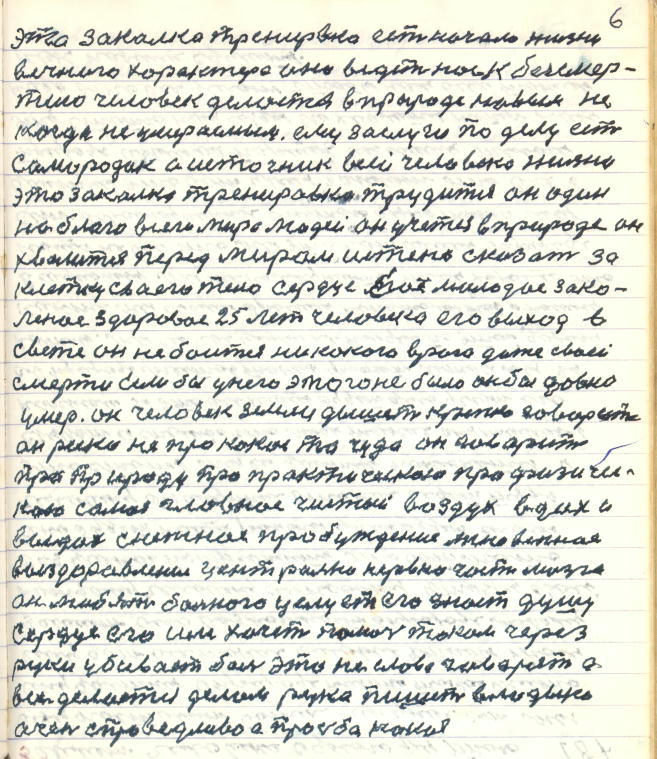 6
Эта закалка тренировка есть начало жизни
вечного характера она ведет нас к безсмер-
тию человек делается в природе новым не
когда не умираемым. ему заслуги по делу есть
самородок а источник всей человека жизни
это закалка тренировка трудится он один
на благо всего мира людей он учется в природе он
хвалится перед миром истено сказат за
клетку своего тело сердце моё молодое зака-
леное здоровое 25 лет человека его выход в
свете он не боится никокого врага даже своей
смерти если бы у него этого не было он бы давно
умер. он человек земли дышет крепко говорит
он резко не про какое то чуда он говорит
про природу про практическою про физиче-
кою самая гловное чистый воздух вдох и
выдох снежное пробуждение мгновенная
выздоравление централно нервно части мозга
он любит болного целует его знает душу
сердце его или хочет помоч током через
руки убивает бол это не слова говорят а
все делается делом рука пишет владыка
очен справедливо а прозба какая